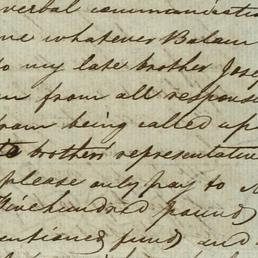 verbal communication
me whatever Balan
to my late brother Jose
m from all respons
from being called up
to brothers' representative
please only pay to
Five hundred pound
entioned fund and